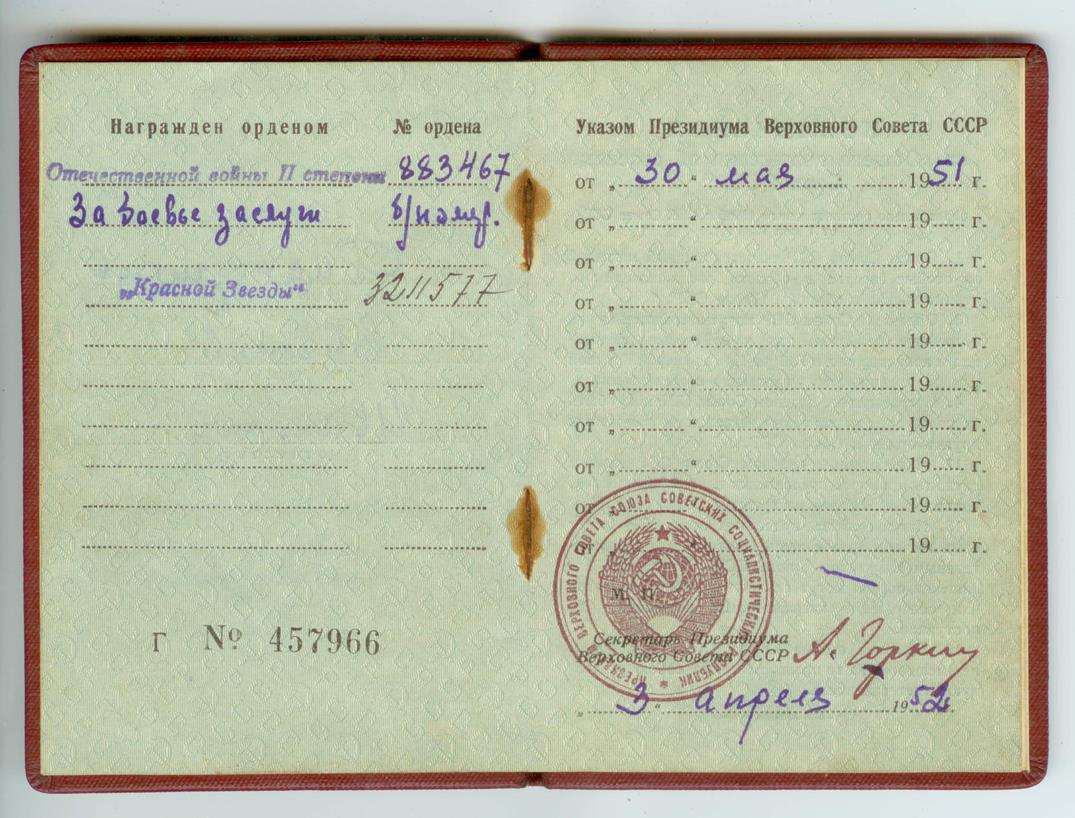 Награжден орденом № ордена
Отечественной войны II степени 883467
За боевые заслуги б/номер.
„Красной Звезды“ 3211577
Г № 457966
Указом Президиума Верховного Совета СССР
от „ 30 “ мая 1951 г.
от „ “ 19 г.
от „ “ 19 г.
от „ “ 19 г.
от „ “ 19 г.
от „ “ 19 г.
от „ “ 19 г.
от „ “ 19 г.
от „ “ 19 г.
от „ “ 19 г.
ПРЕЗИДИУМ ВЕРХОВНОГО СОВЕТА СОЮЗА СОВЕТСКИХ СОЦИАЛИСТИЧЕСКИХ РЕСПУБЛИК
М. П.
Секретарь Президиума
Верховного Совета СССР А. Горкин
„ 3 “ апреля 1952